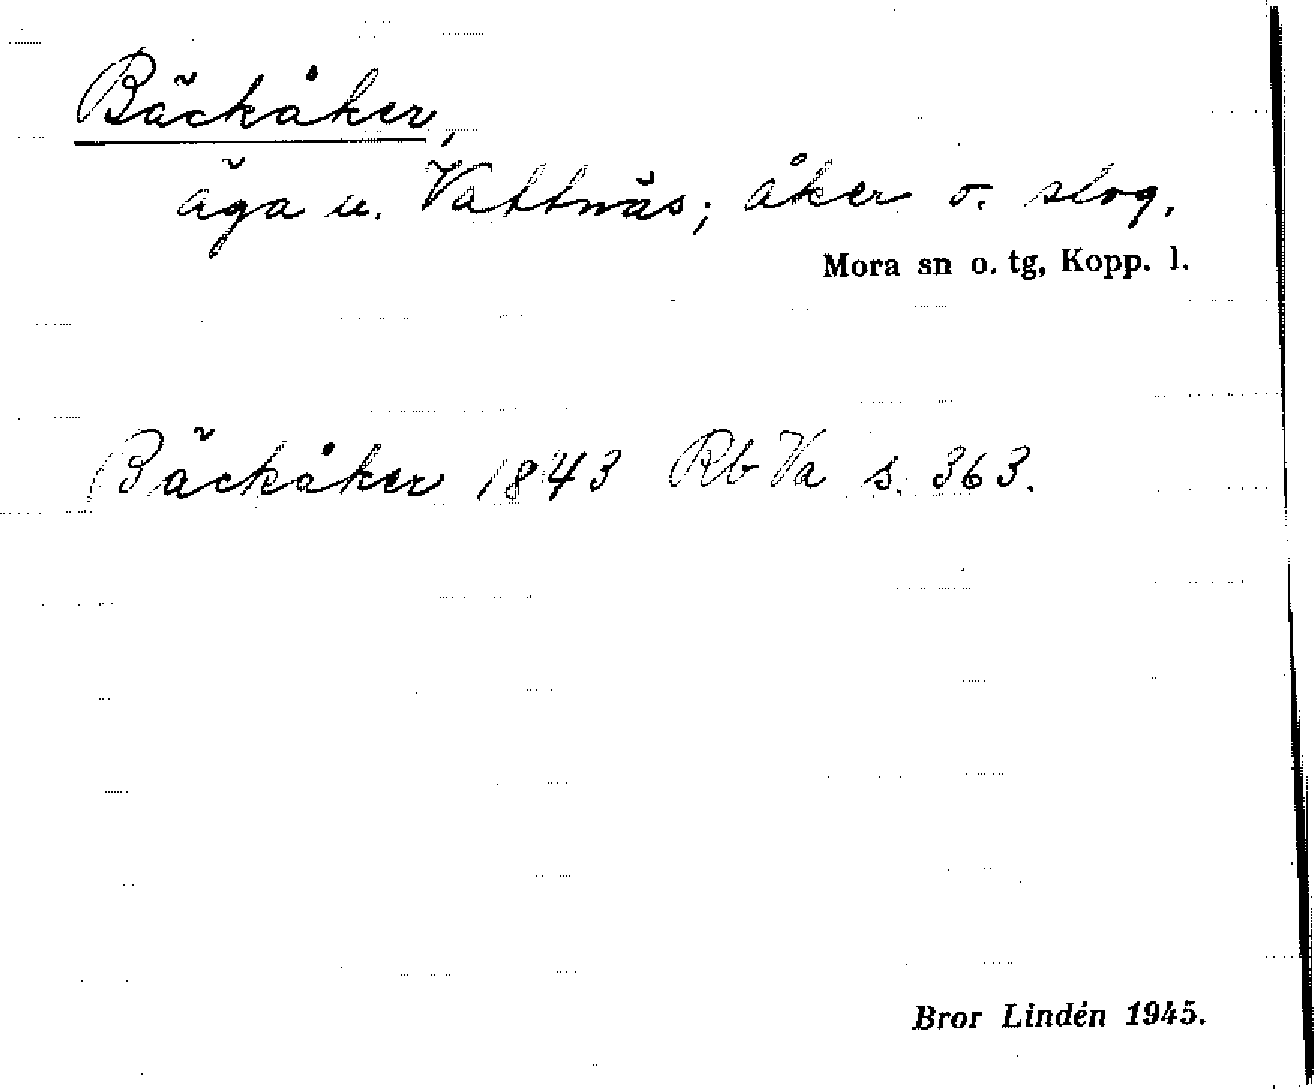 Bäckåker,
äga u. Vattnäs; åker o. slog.
Mora sn o. tg, Kopp. l.
Bäckåker 1843 Rb Va s. 363.
Bror Lindén 1945.